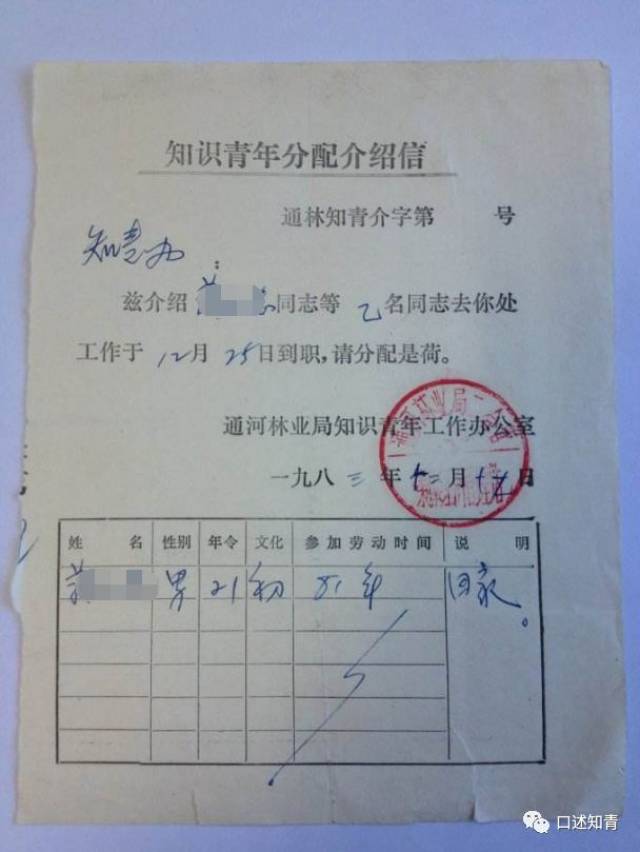 知识青年分配介绍信
通林知青介字第 号
知青办：
兹介绍 同志等 乙名同志去你处
工作于 12月 25日到职，请分配是荷。
通河林业局知识青年工作办公室
一九八三年十二月十 日
姓 名 性别 年令 文化 参加劳动时间 说 明
男 21 初 81年 回家。
口述知青